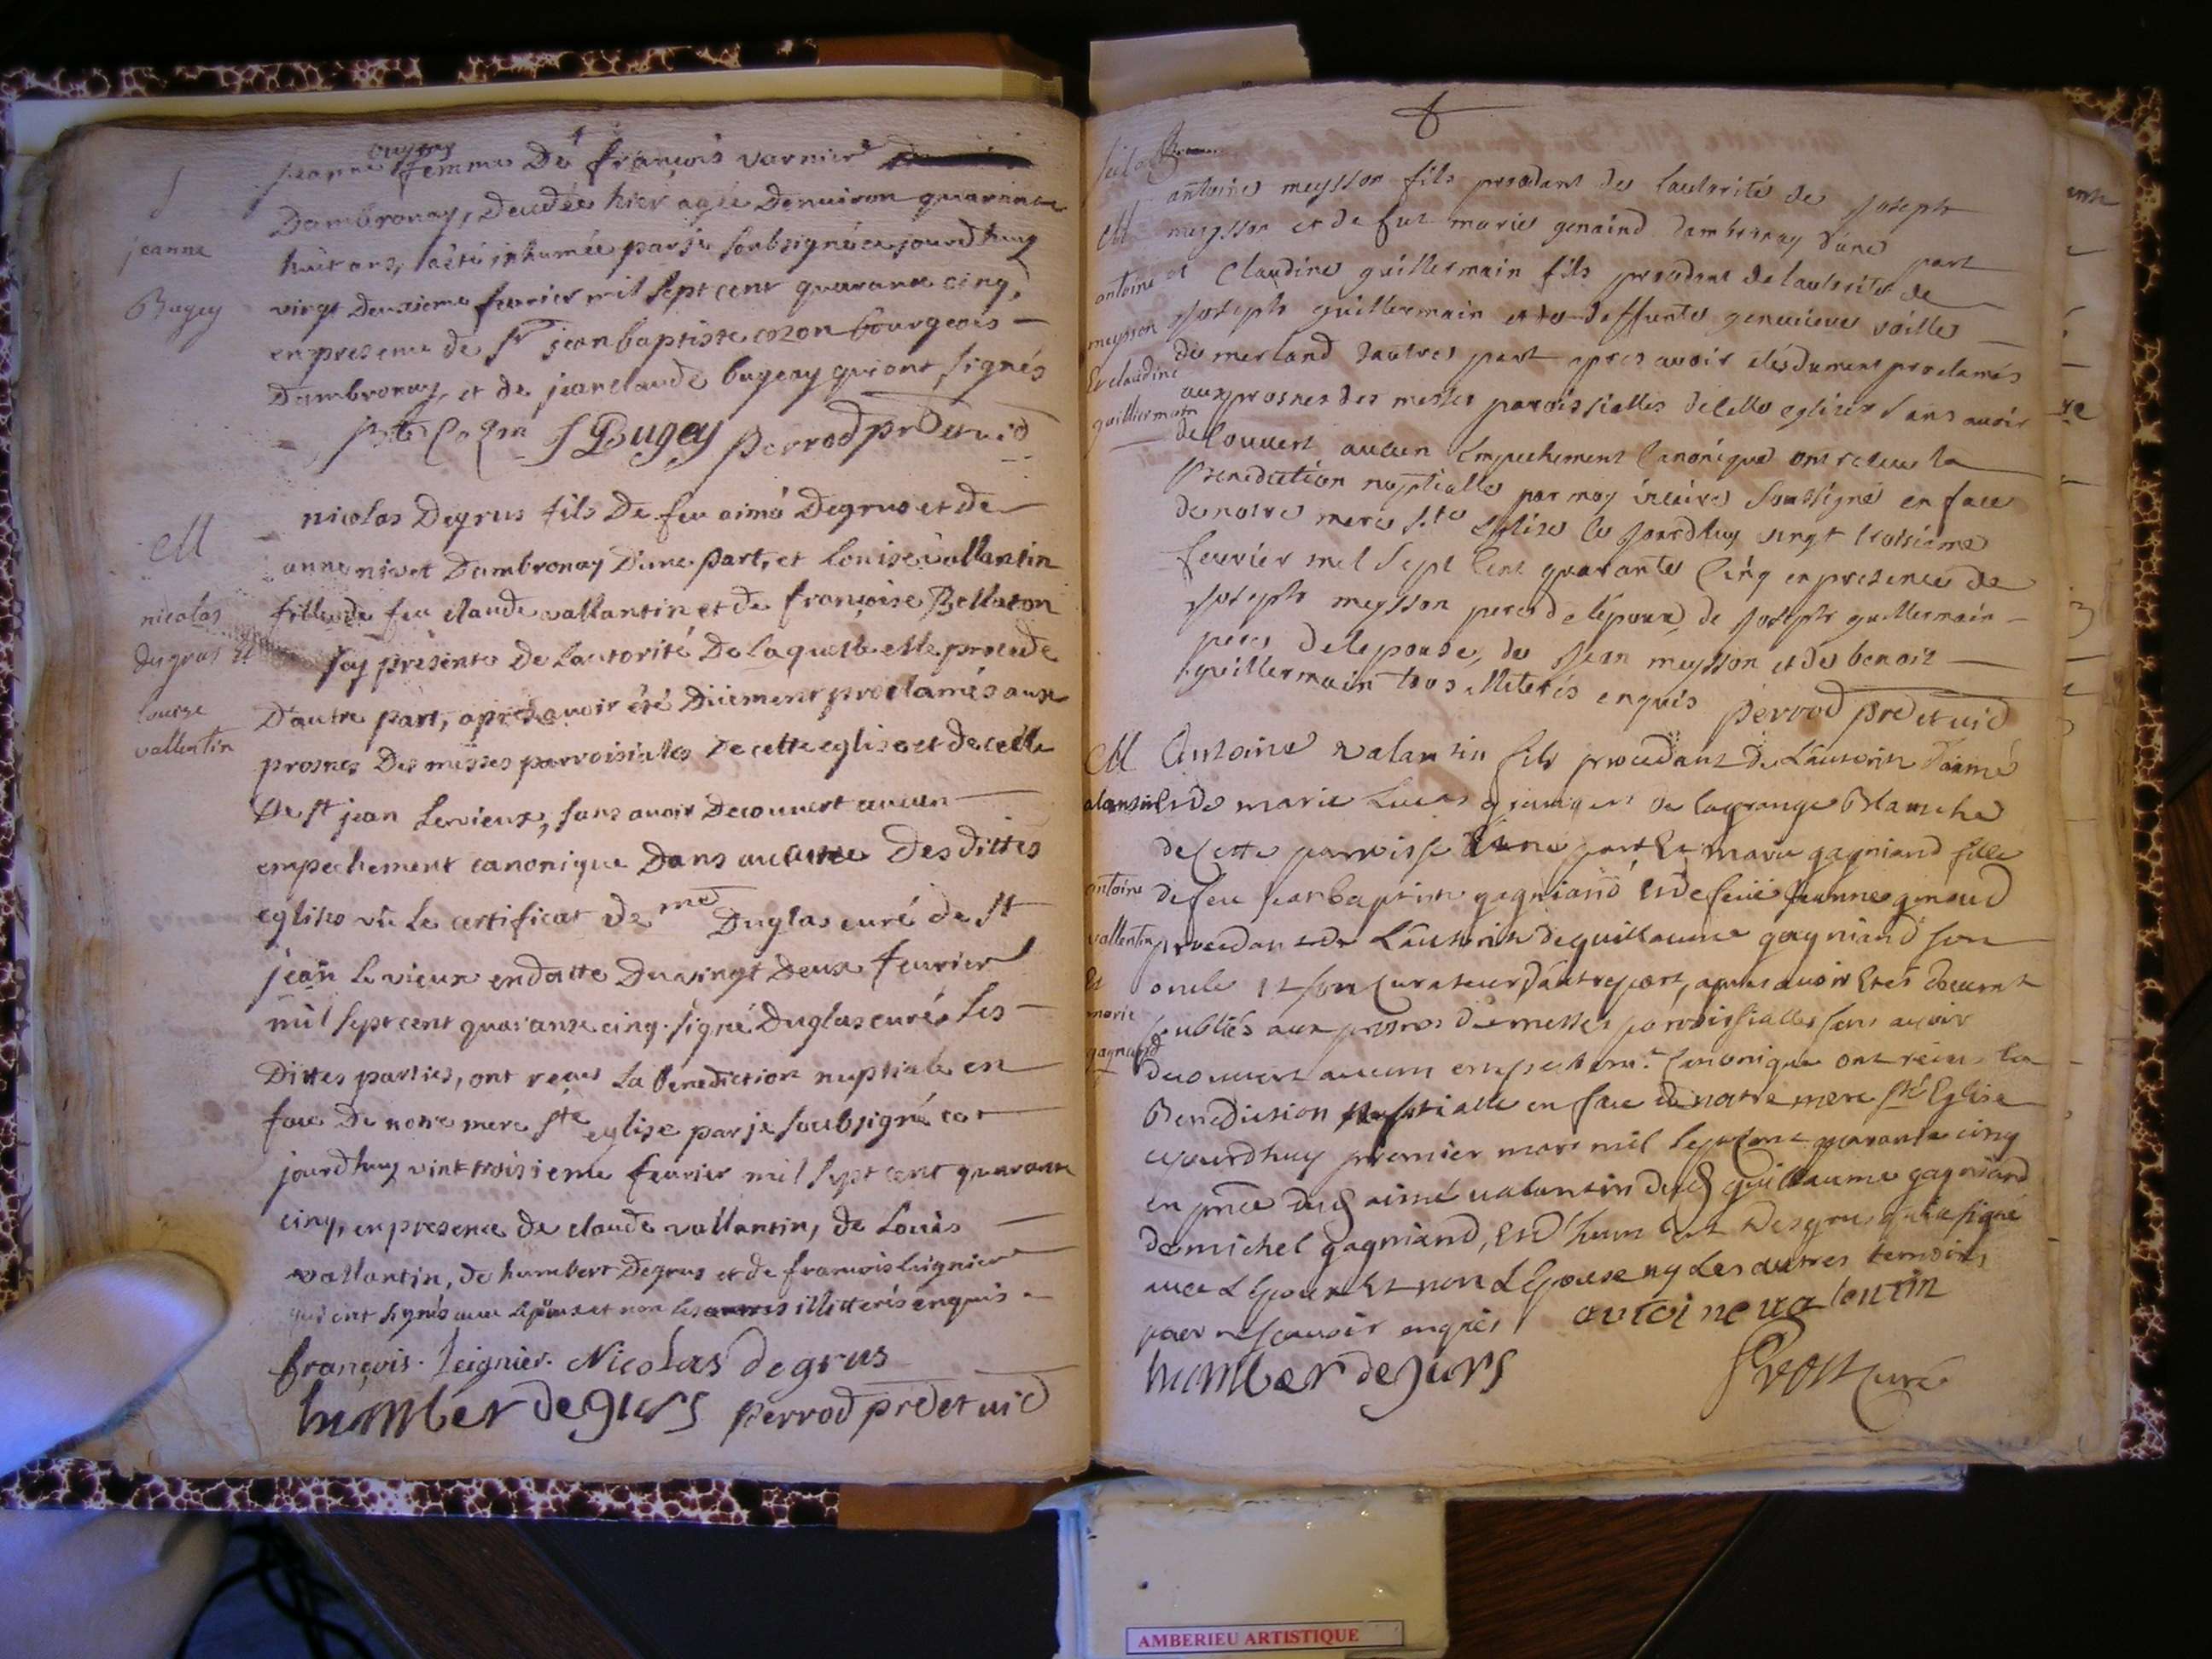 jeanne bugey femme De françois varnier
Dambronay, decedée hier agée Denviron quarante
huit ans, a été inhumée par je soubsigné ce jourdhuy
vingt deuxieme fevrier mil sept cent quarante cinq,
en presence de Sr jean baptiste cozon bourgeois
Dambronay, et de jean claude bugeay qui ont signés
S Bugey perrod prd et vic
jeanne
Bugey
nicolas Degrus fils De feu aimé Degrus et De
anne nivet Dambronay D'une part, et louise vallantin
fille de feu claude vallantin et de françoise Bellaton
icy presente De lautorité De laquelle elle procede
D'autre part, apres avoir été Duement proclamés aux
prosnes Des messes parroisiales De cette eglise et de celle
De st jean Levieux, sans avoir Decouvert aucun
empechement canonique Dans aucune Des dittes
eglises vû le certificat de me Duglas curé de st
jean le vieux en datte Du vingt Deux fevrier
mil sept cent quarante cinq. signé Duglas curé, les
Dittes parties, ont reçues la benediction nuptiale en
face De notre mere ste eglise par je soubsigné ce
jourdhuy vint troisieme fevrier mil sept cent quarante
cinq, en presence de claude vallantin, de Louis
vallantin, de humbert Degrus et de françois leignier
qui ont signés avec lépoux et non les autres illitterés enquis
françois. leignier. Nicolas degrus
humber degurs perrod prd et vic
M
nicolas
degrus et
louise
vallentin
antoine meysson fils procedant de lautorité de Joseph
meysson et de fut marie genaind dambronay d'une part
et Claudine guillermain fille procedant de lautorité de
Joseph guillermain et de deffunte genevieve
de merland dautre part apres avoir étés dument proclamés
aux prosnes des messes paroissialles de cette eglise sans avoir
decouvert aucun empechement Canonique ont receu la
Benediction nuptialle par moy vicaire soussigné en face
de notre mere Ste eglise ce jourdhuy vingt troisieme
fevrier mil sept Cent quarante Cinq en presence de
Joseph meysson pere de lépoux, de Joseph guillermain
pere de lepouse, de Jean meysson et de benoit
guillermain tous illiterés enquis perrod prd et vic
M
antoine
meysson
Et claudine
guilliermain
Antoine valantin fils procedant de Lautorité d'aimé
valantin et de marie Lucas grangers de la grange Blanche
de cette paroisse d'une part et marie gagniand fille
de feu jean baptiste gagniand et de feüe jeanne genoud
procedante de Lautorité de guillaume gagniand son
oncle et son Curateur d'autre part, apres avoir étés düement
publiés aux prosnes de messes paroissialles sans avoir
decouvert aucun empechemt. Canonique ont receus la
Benediction Nuptialle en face de notre mere ste Eglise
cejourdhuy premier mars mil sept cent quarante cinq
en pnce dud aimé valantin dud guillaume gagniand
de michel gagniand, et d'humbert Desgrus qui a signé
avec L'Epoux Et non L'Epouse ny Les autres temoins
pour ne scavoir enquis antoine valentin
humber degurs curé
M
antoine
vallentin
Et
marie
gagniand
AMBERIEU ARTISTIQUE